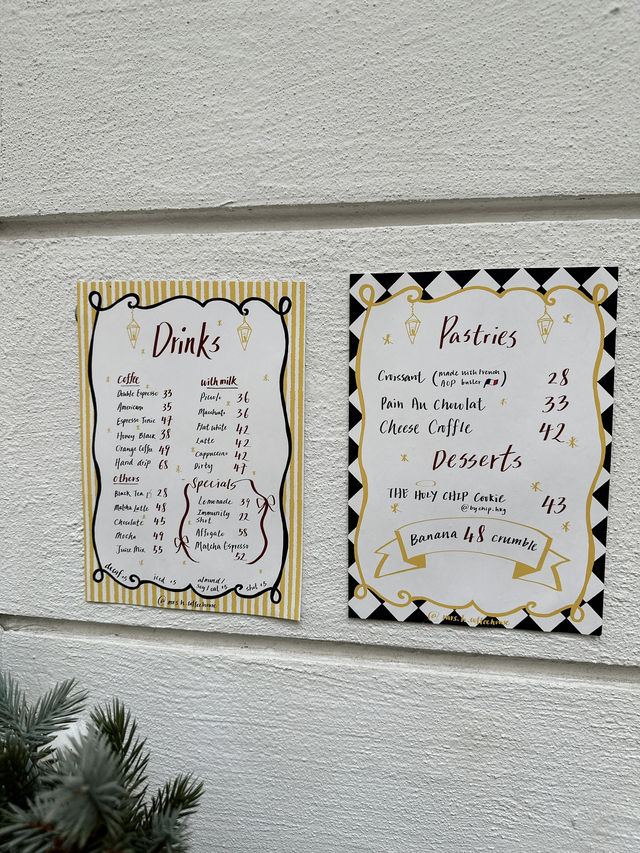 Drinks
Coffee
Double Espresso 33
American 35
Espresso Tonic 47
Honey Black 38
Orange Coffee 49
Hand drip 68
others
Black Tea 28
Matcha Latte 48
Chocolate 45
Mocha 49
Juice Mix 55
with milk
Piccolo 36
Macchiato 36
Flat White 42
Latte 42
Cappuccino 42
Dirty 47
Specials
Lemonade 39
Immunity
shot 22
Affogato 58
Matcha Espresso
52
decaf +5
iced +5
almond/
soy/oat +5
shot +5
@mrs.h.coffeehouse
Pastries
Croissant (made with French
AOP butter 🇫🇷) 28
Pain Au Chocolat 33
Cheese Croffle 42
Desserts
THE HOLY CHIP Cookie
@bychip.hkg 43
Banana 48 crumble
@mrs.h.coffeehouse